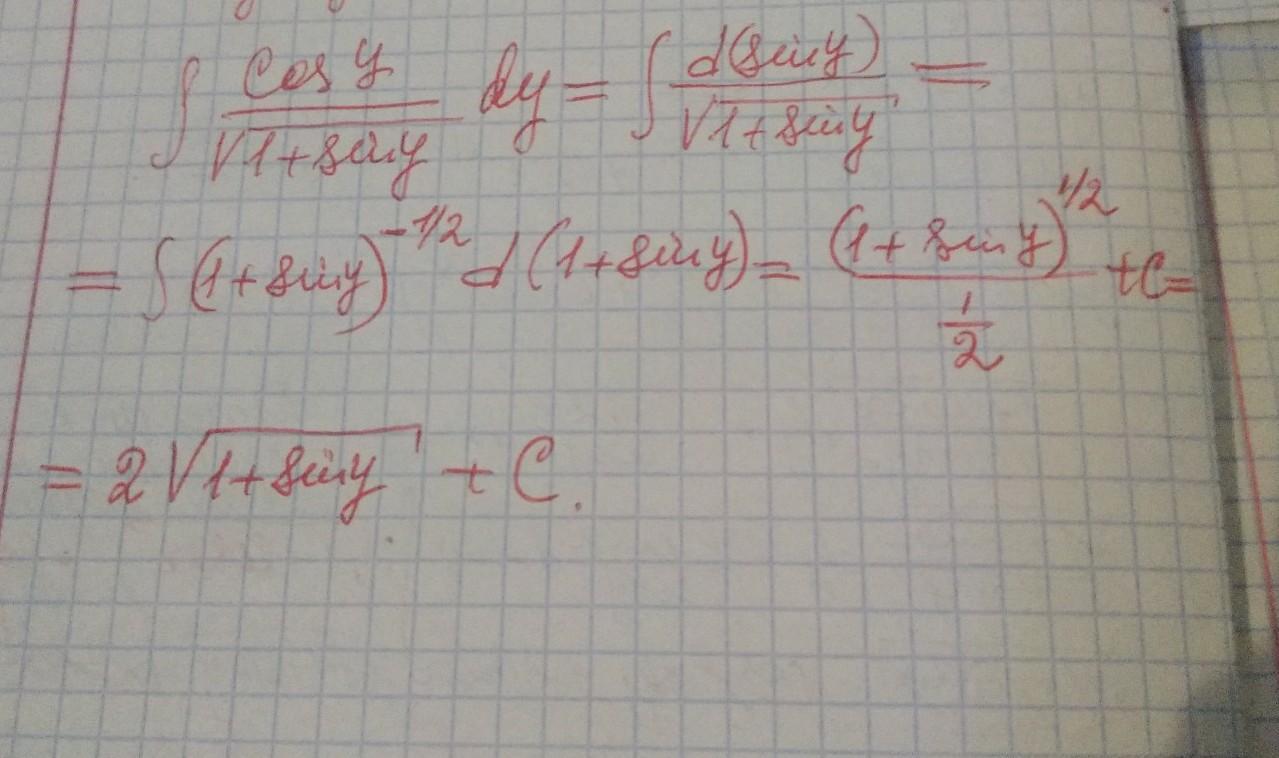 ∫ cos y / √(1+sin y) dy = ∫ d(sin y) / √(1+sin y) =
= ∫ (1+sin y)^(-1/2) d(1+sin y) = (1+sin y)^(1/2) / (1/2) + C =
= 2√(1+sin y) + C.